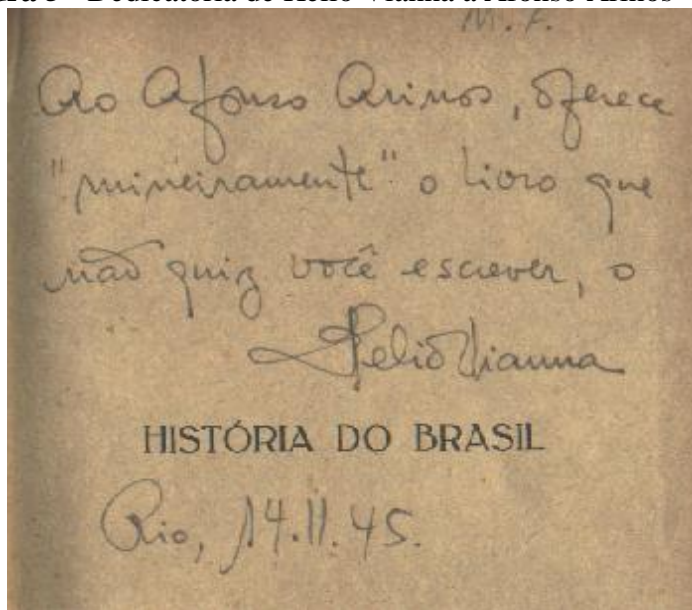 Dedicatória de Hélio Vianna a Afonso Arinos
M. F.
Ao Afonso Arinos, oferece
"mineiramente" o livro que
não quiz você escrever, o
Helio Vianna
HISTÓRIA DO BRASIL
Rio, 14.11.45.